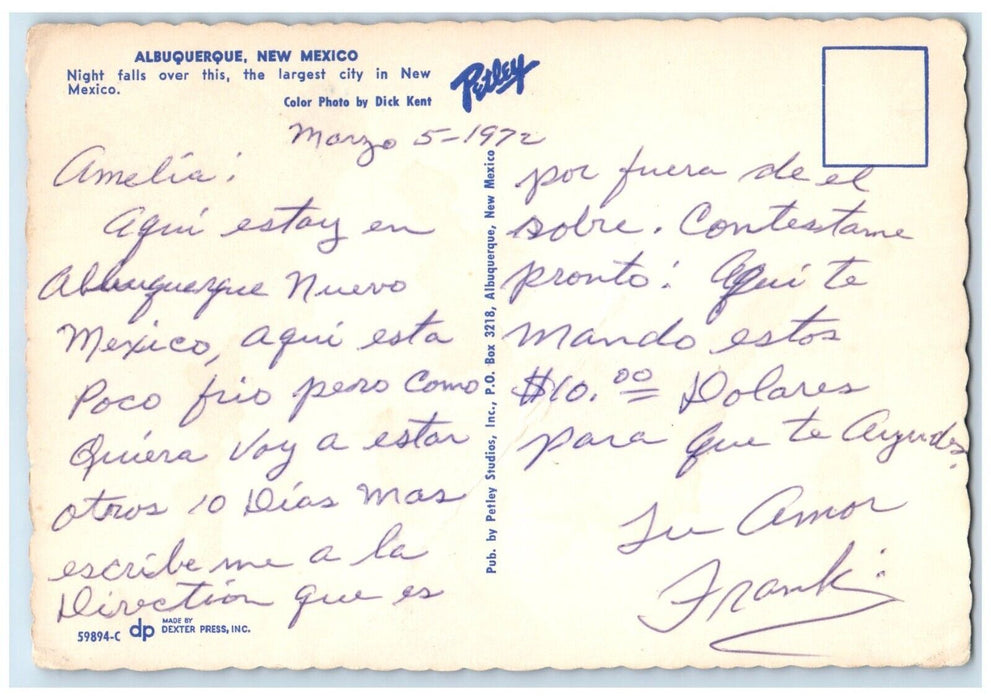 ALBUQUERQUE, NEW MEXICO
Night falls over this, the largest city in New
Mexico.
Color Photo by Dick Kent
Petley
Marzo 5-1972
Amelia:
Aqui estoy en
Albuquerque Nuevo
Mexico, aqui esta
Poco frio pero Como
Quiera Voy a estar
otros 10 Días mas
escribe me a la
Direction que es
59894-C dp MADE BY
DEXTER PRESS, INC.
Pub. by Petley Studios, Inc., P.O. Box 3218, Albuquerque, New Mexico
por fuera de el
sobre. Contestame
pronto: Aqui te
mando estos
$10.00 Dolares
para que te Ayudes.
Tu Amor
Frank